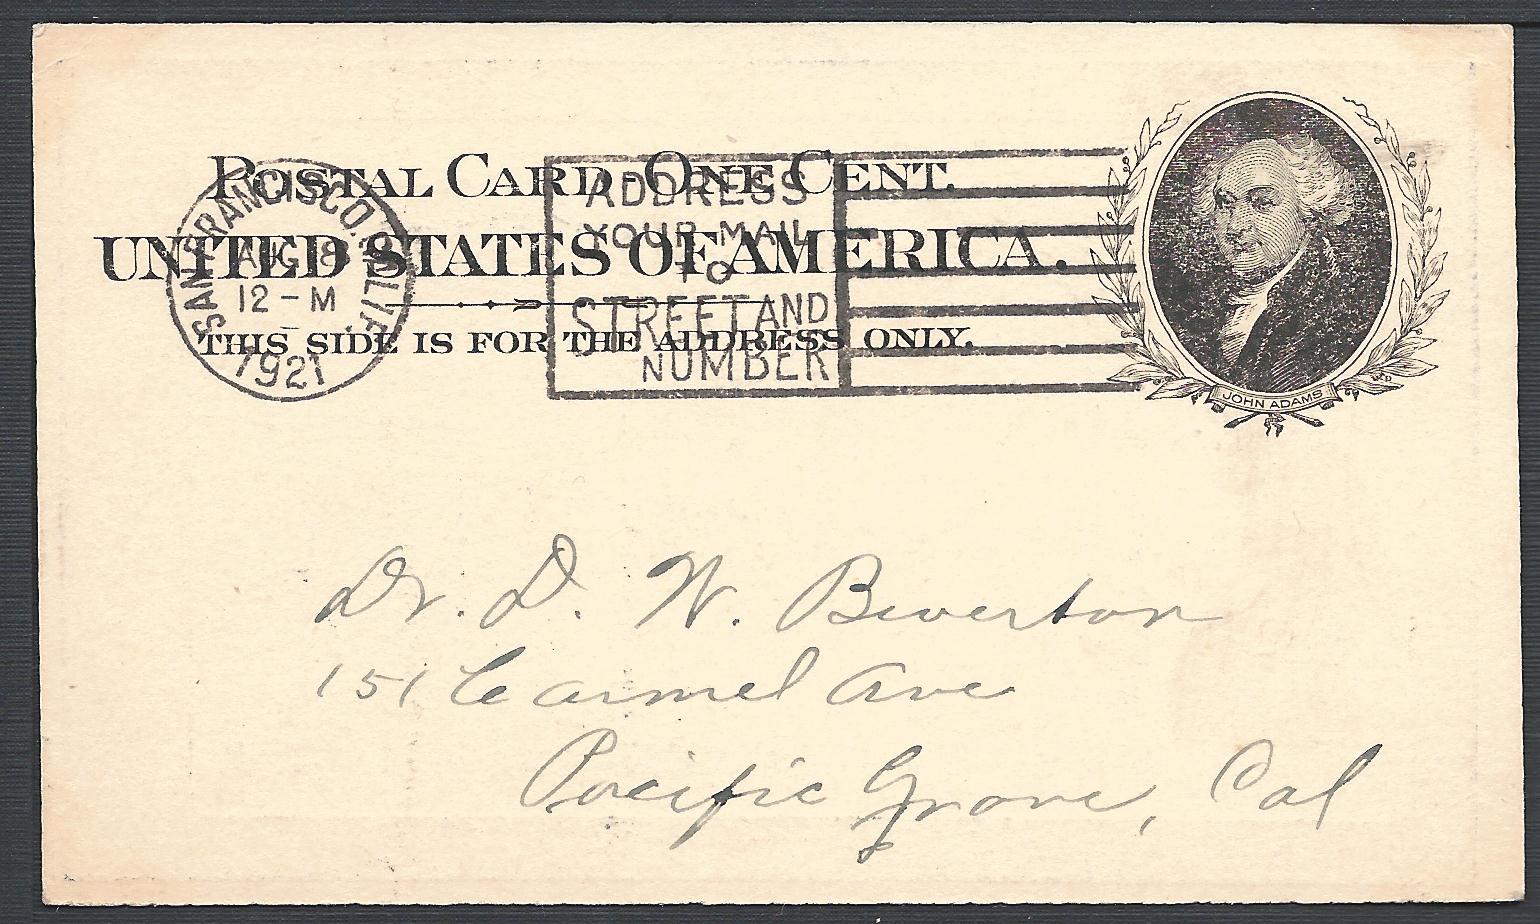 POSTAL CARD ONE CENT.
UNITED STATES OF AMERICA.
THIS SIDE IS FOR THE ADDRESS ONLY.
SAN FRANCISCO. CALIF.
AUG 18
12 – M
1921
ADDRESS
YOUR MAIL
TO
STREET AND
NUMBER
JOHN ADAMS
Dr. D. W. Beverton
151 Carmel Ave
Pacific Grove, Cal